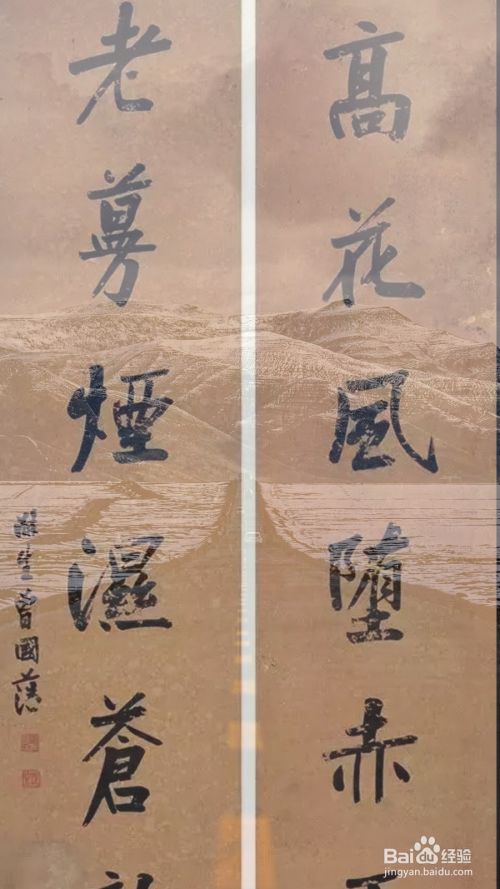 高花風墮赤
老蔓煙濕蒼
滌生曾國藩
Baidu经验
jingyan.baidu.com